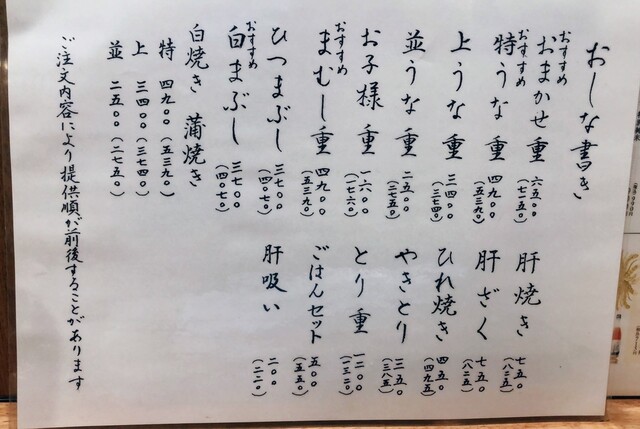 おしな書き
おすすめ
おまかせ重 六五〇〇
(七一五〇)
おすすめ
特うな重 四九〇〇
(五三九〇)
上うな重 三四〇〇
(三七四〇)
並うな重 二五〇〇
(二七五〇)
お子様重 一六〇〇
(一七六〇)
おすすめ
まむし重 四九〇〇
(五三九〇)
ひつまぶし 三七〇〇
(四〇七〇)
おすすめ
白まぶし 三七〇〇
(四〇七〇)
肝焼き 七五〇
(八二五)
肝ざく 七五〇
(八二五)
ひれ焼き 四五〇
(四九五)
やきとり 三五〇
(三八五)
とり重 一二〇〇
(一三二〇)
ごはんセット 五〇〇
(五五〇)
肝吸い 二〇〇
(二二〇)
白焼き 蒲焼き
特 四九〇〇(五三九〇)
上 三四〇〇(三七四〇)
並 二五〇〇(二七五〇)
ご注文内容により提供順が前後することがあります